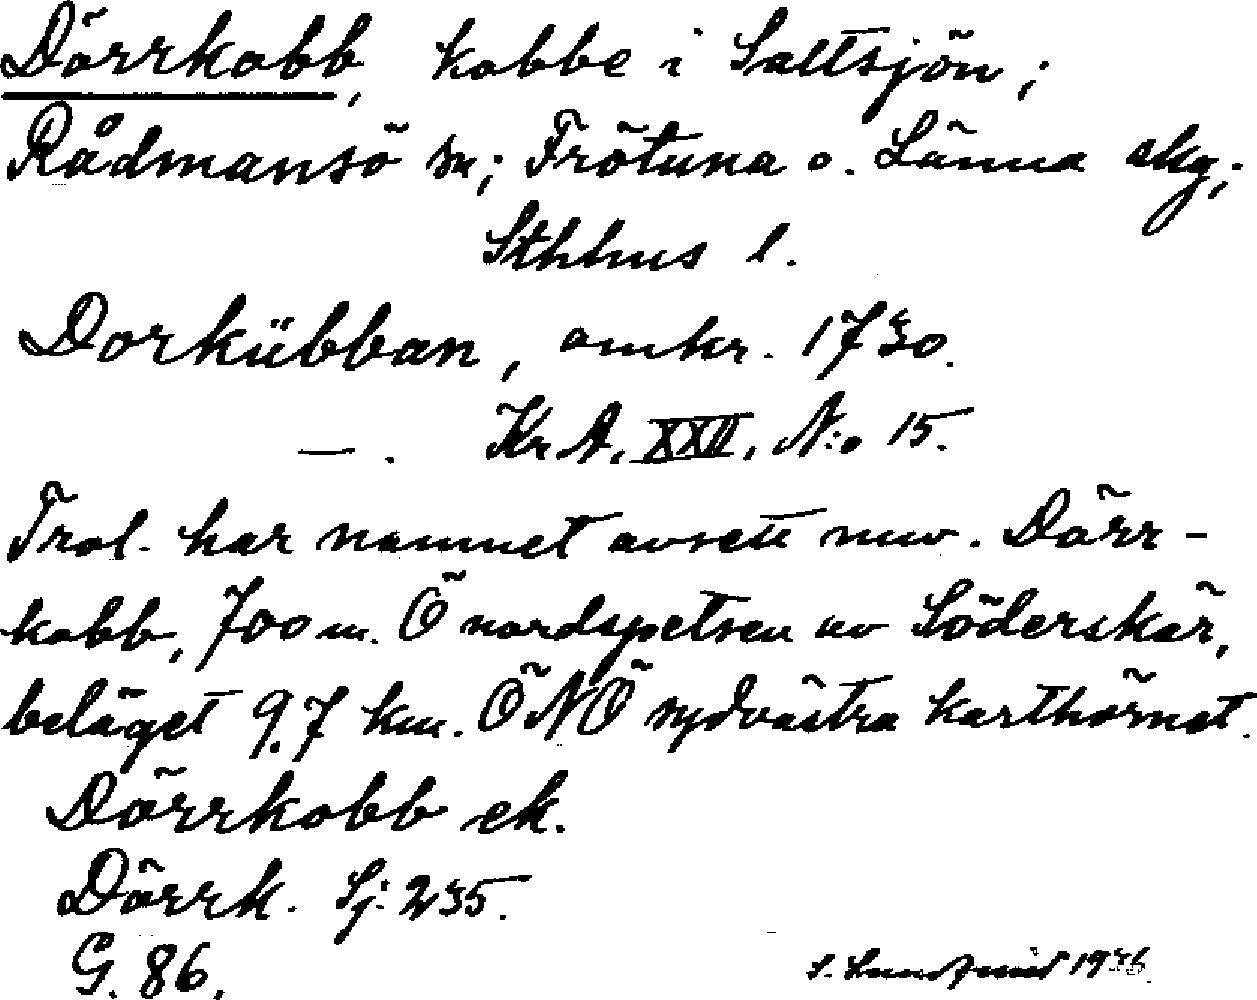 Dörrkobb, kobbe i Saltsjön;
Rådmansö sn; Frötuna o. Länna skg;
Sthhus l.
Dorkübban, omkr. 1730.
—. KrA, XXII, N:o 15.
Trol. har namnet avsett nuv. Dörr-
kobb, 700 m. Ö nordspetsen av Söderskär,
beläget 9.7 km. ÖNÖ sydvästra karthörnet.
Dörrkobb ek.
Dörrk. Sj: 235.
G. 86. S. Lundqvist